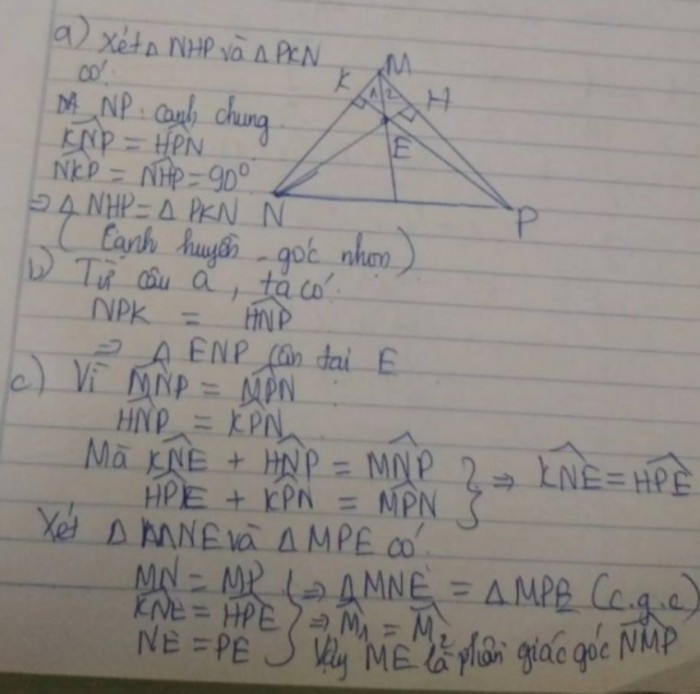 a) Xét Δ NHP và Δ PKN
có:
NP: cạnh chung
KNP = HPN
NKP = NHP = 90°
⇒ Δ NHP = Δ PKN
(Cạnh huyền - góc nhọn)
K M
1 2 H
E
N P
b) Từ câu a, ta có:
NPK = HNP
⇒ Δ ENP cân tại E
c) Vì MNP = MPN
HNP = KPN
Mà KNE + HNP = MNP
HPE + KPN = MPN } ⇒ KNE = HPE
Xét Δ MNE và Δ MPE có
MN = MP
KNE = HPE
NE = PE } ⇒ Δ MNE = Δ MPE (c.g.c)
⇒ M1 = M2
Vậy ME là phân giác góc NMP